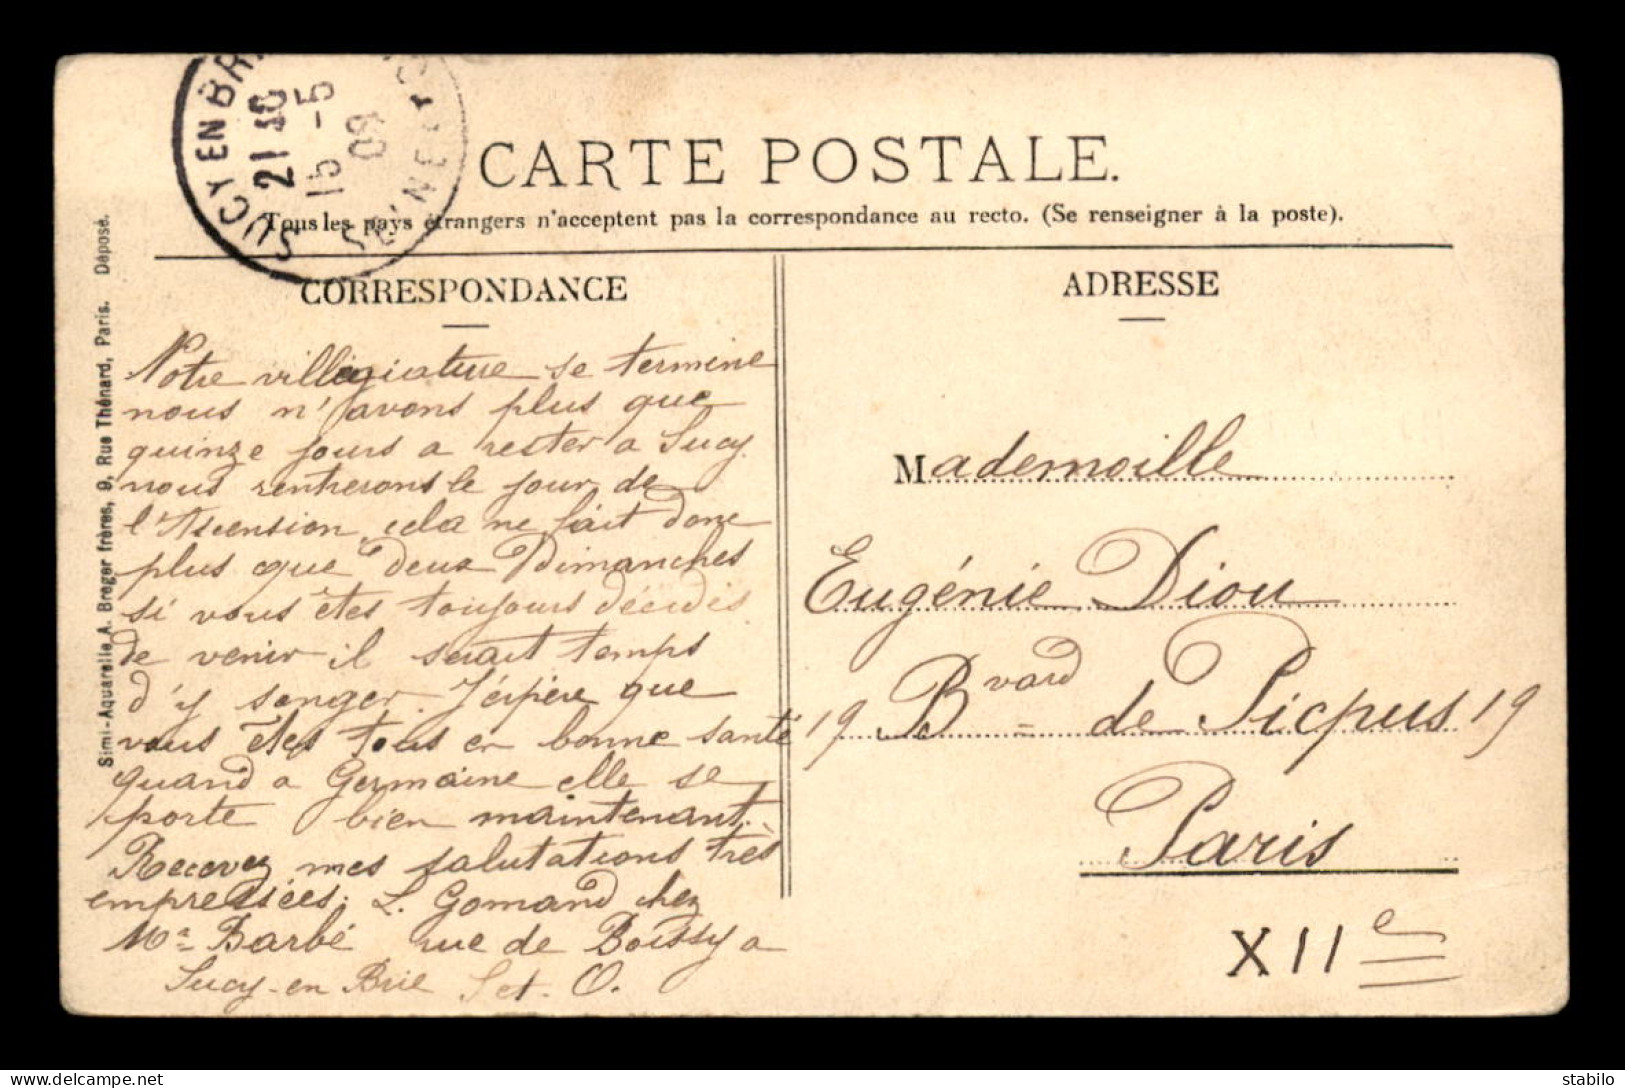 SUCY EN BR
21 10
15 -5
09
SEINE
CARTE POSTALE.
Tous les pays étrangers n'acceptent pas la correspondance au recto. (Se renseigner à la poste).
Simi-Aquarelle A. Breger frères, 9, Rue Thénard, Paris. Déposé.
CORRESPONDANCE
Notre villégiature se termine
nous n'avons plus que
quinze jours a rester a Sucy
nous rentrerons le jour de
l'Ascension, cela ne fait donc
plus que deux Dimanches
si vous êtes toujours décidés
de venir il serait temps
d'y songer. J'éspère que
vous êtes tous en bonne santé
quand a Germaine elle se
porte bien maintenant.
Recevez mes salutations très
empressées; L. Gomand chez
Ma Barbé rue de Boissy a
Sucy-en Brie Set. O.
ADRESSE
Mademoille
Eugénie Diou
19 Bvard = de Picpus 19
Paris
XIIe
stabilo